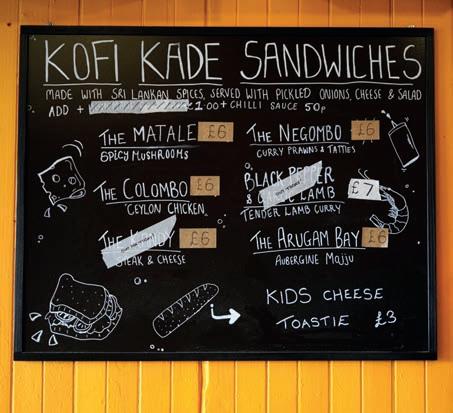 KOFI KADE SANDWICHES
MADE WITH SRI LANKAN SPICES, SERVED WITH PICKLED ONIONS, CHEESE & SALAD
ADD + £1.00 + CHILLI SAUCE 50p
THE MATALE £6
SPICY MUSHROOMS
THE NEGOMBO £6
CURRY PRAWNS & TATTIES
THE COLOMBO £6
"CEYLON CHICKEN"
BLACK PEPPER
& LAMB £7
TENDER LAMB CURRY
THE £6
STEAK & CHEESE
THE ARUGAM BAY £6
AUBERGINE MOJJU
KIDS CHEESE
TOASTIE £3